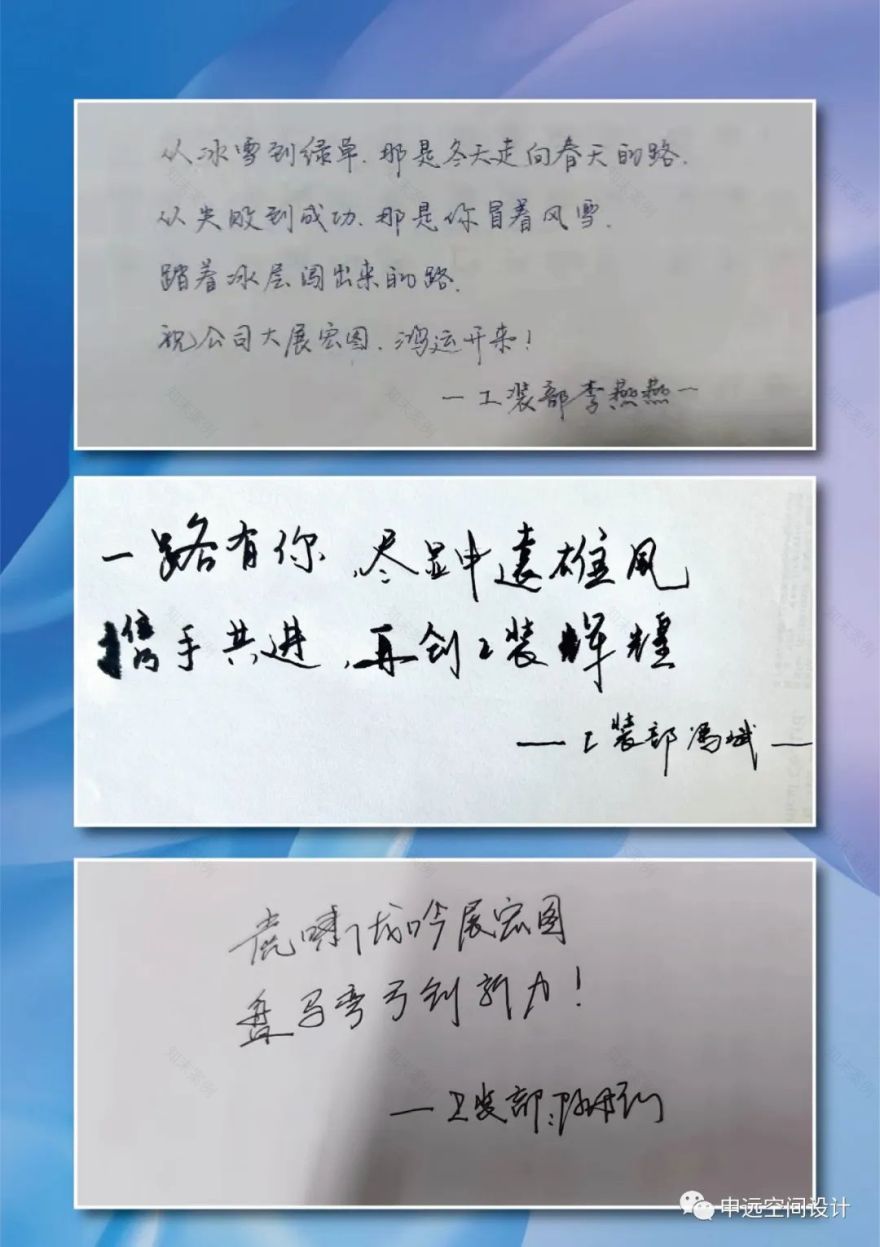 从冰雪到绿草.那是冬天走向春天的路.
从失败到成功.那是你冒着风雪.
踏着冰层闯出来的路.
祝公司大展宏图.鸿运开来!
—工装部李燕燕—
一路有你,尽显中远雄风
携手共进,再创工装辉煌
—工装部冯斌—
虎啸龙吟展宏图
盘马弯弓创新力!
—工装部:
中远空间设计
知末案例